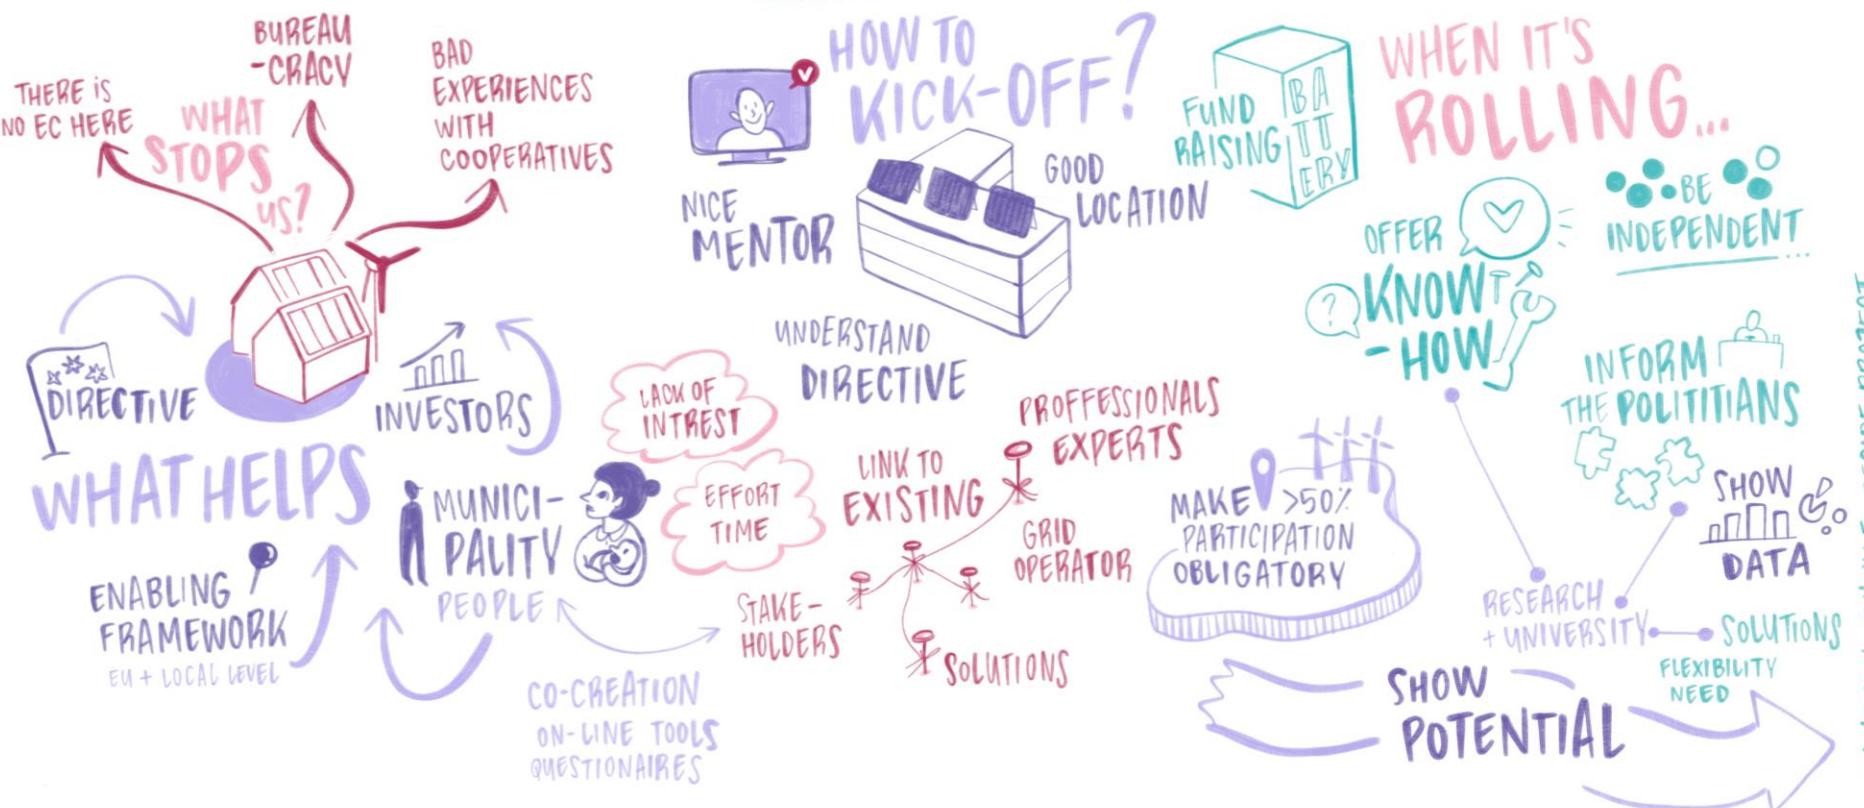 THERE iS
NO EC HERE
BUREAU
-CRACY
WHAT
STOPS
US?
BAD
EXPERIENCES
WITH
COOPERATIVES
DIRECTIVE
INVESTORS
WHAT HELPS
ENABLING
FRAMEWORK
EU + LOCAL LEVEL
MUNICI-
PALITY
PEOPLE
LACK OF
INTREST
EFFORT
TIME
CO-CREATION
ON-LINE TOOLS
QUESTIONAIRES
HOW TO
KICK-OFF?
NICE
MENTOR
GOOD
LOCATION
UNDERSTAND
DIRECTIVE
LINK TO
EXISTING
PROFFESSIONALS
EXPERTS
GRID
OPERATOR
STAKE-
HOLDERS
SOLUTIONS
FUND
RAISING
BA
TT
ERY
WHEN IT'S
ROLLING...
OFFER
KNOW
-HOW
?
BE
INDEPENDENT
...
INFORM
THE POLITITIANS
MAKE >50%
PARTICIPATION
OBLIGATORY
SHOW
DATA
RESEARCH
+ UNIVERSITY
SOLUTIONS
FLEXIBILITY
NEED
SHOW
POTENTIAL